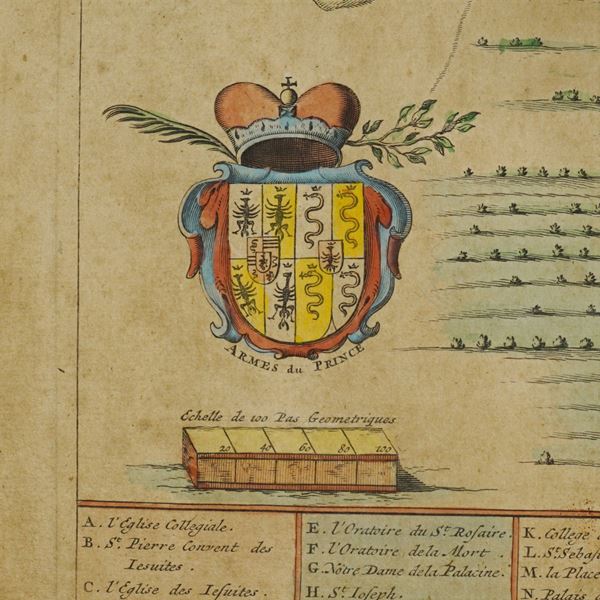 ARMES du PRINCE
Echelle de 100 Pas Geometriques
20 40 60 80 100
A. l'Eglise Collegiale.
B. St. Pierre Convent des
Iesuites.
C. l'Eglise des Iesuites.
E. l'Oratoire du St. Rosaire.
F. l'Oratoire de la Mort.
G. Nôtre Dame de la Palacine.
H. St. Ioseph.
K. College
L. St. Sebas
M. la Place
N. Palais